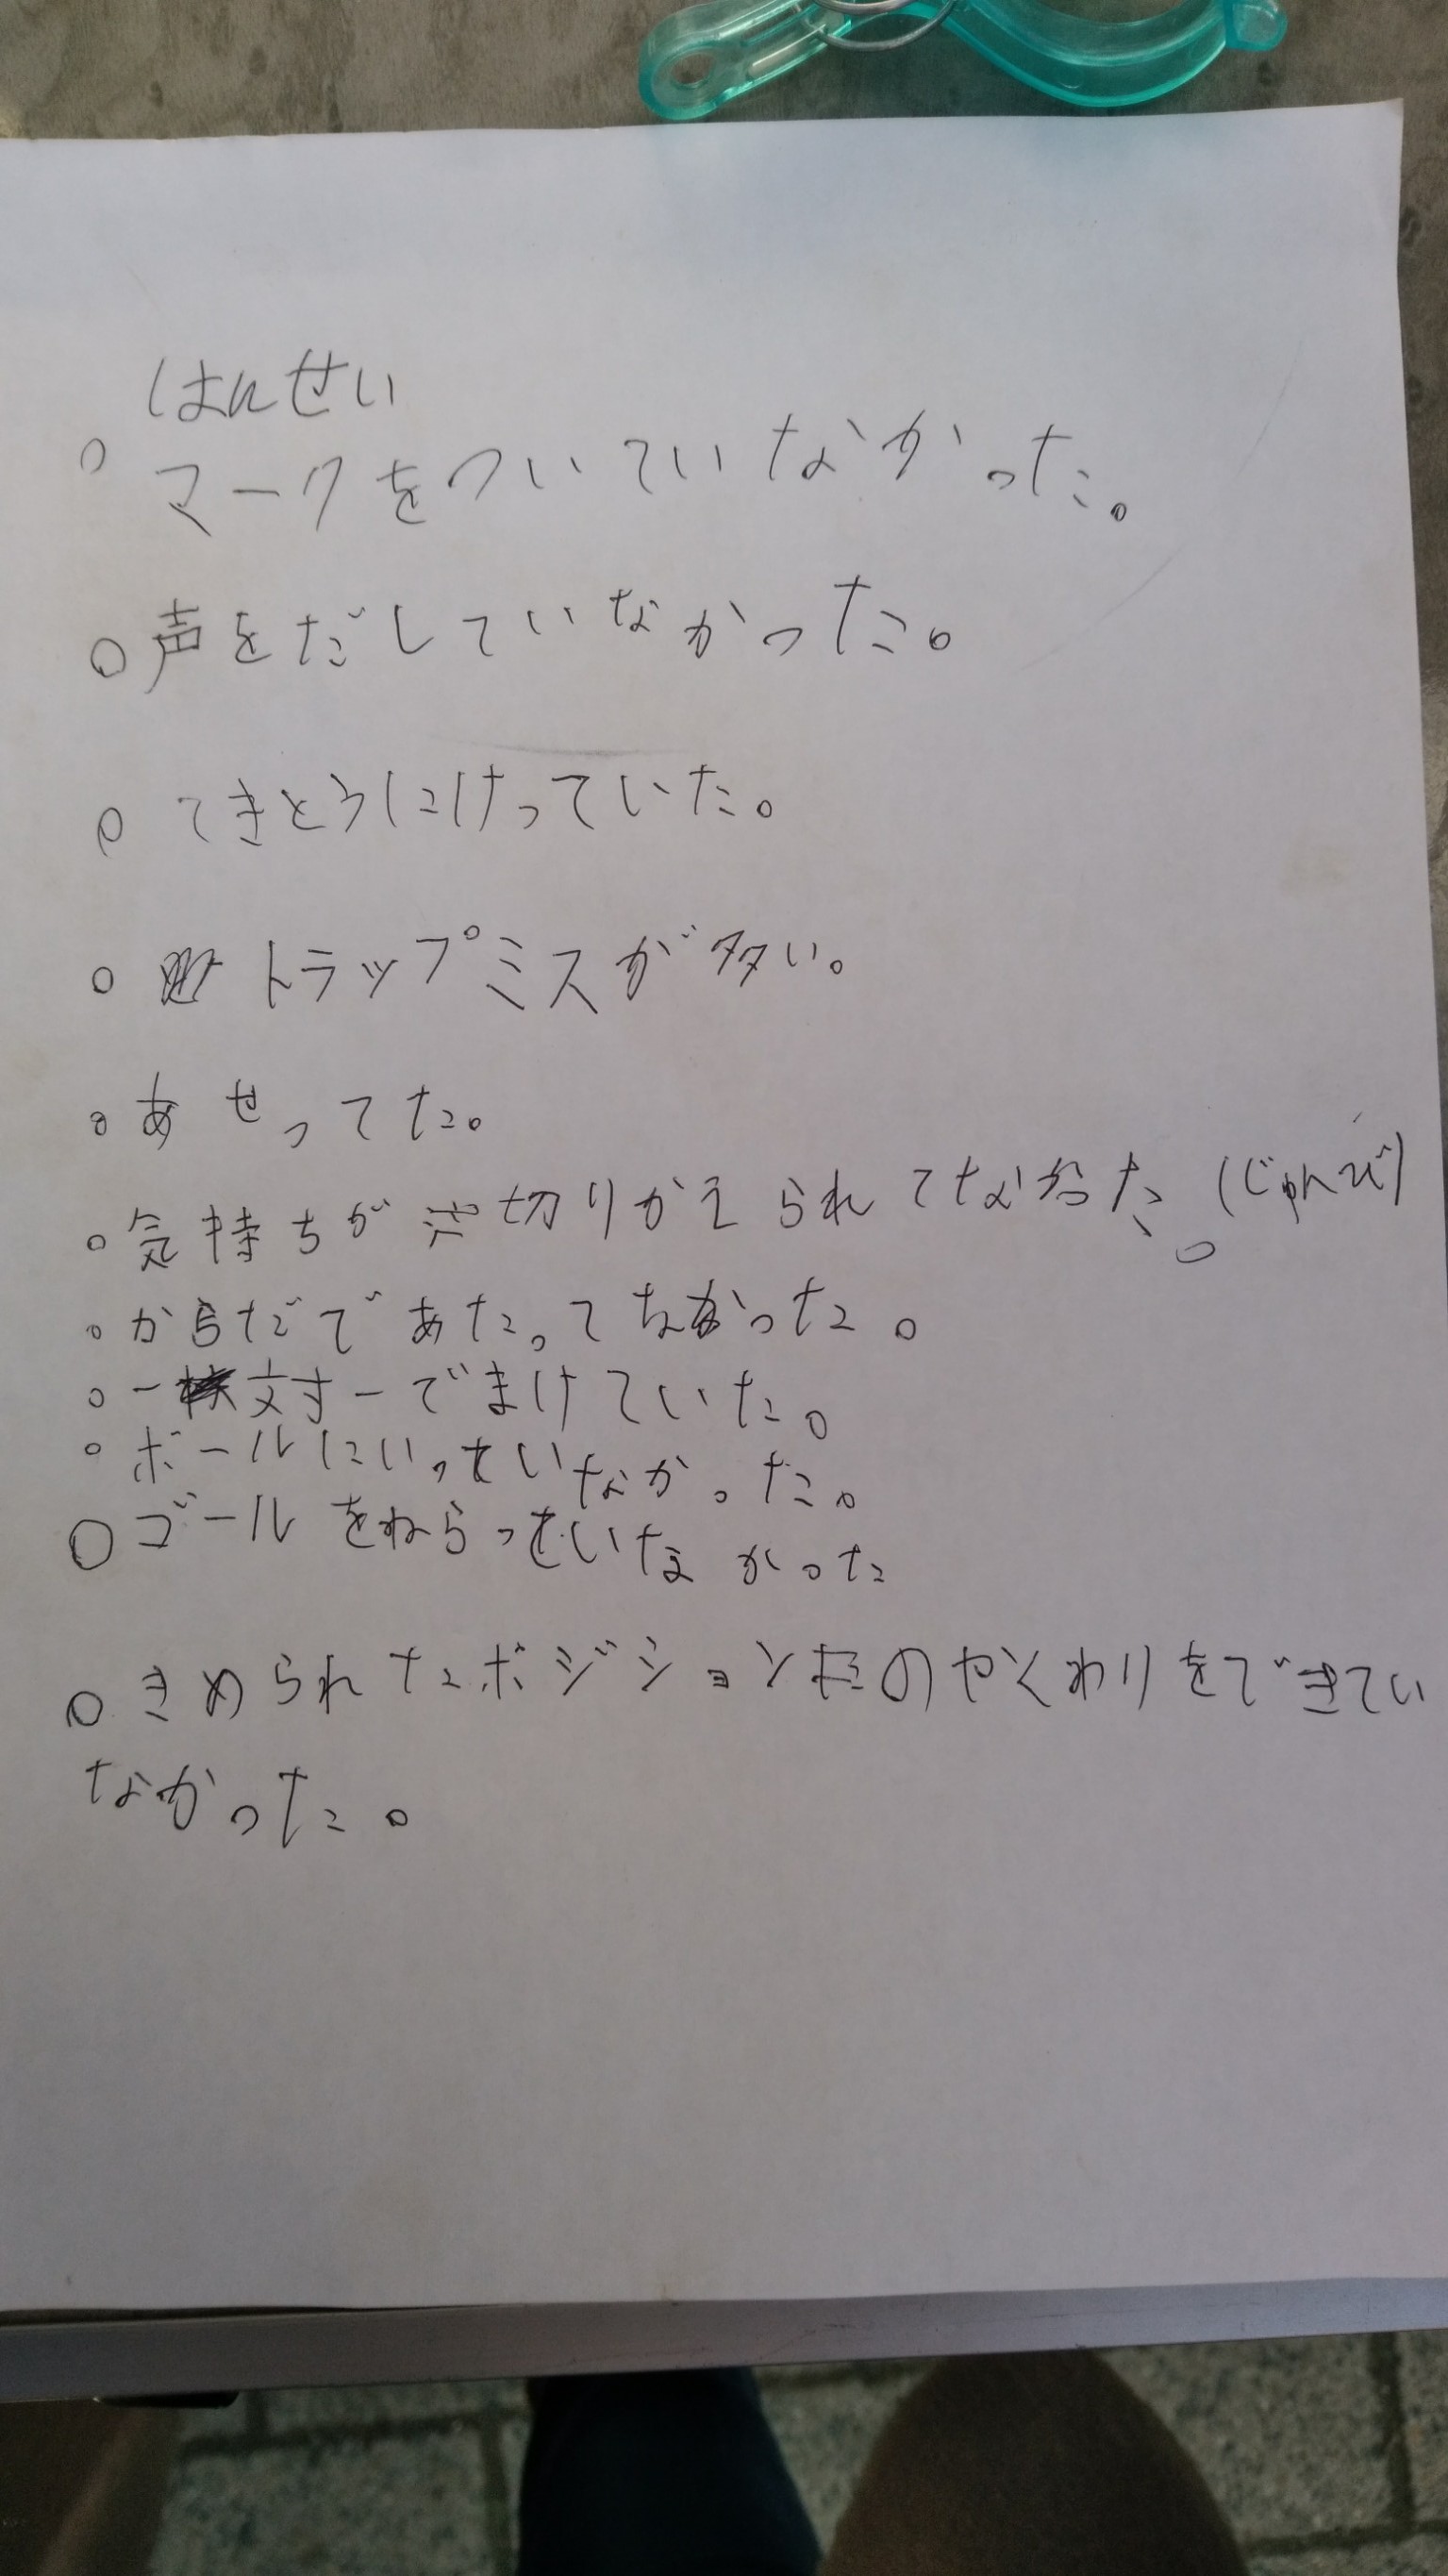 はんせい
○ マークをついていなかった。
○ 声をだしていなかった。
○ てきとうにけっていた。
○ トラップミスが多い。
○ あせってた。
○ 気持ちが切りかえられてなかった。(じゅんび)
○ からだであたってなかった。
○ 一対一でまけていた。
○ ボールにいっていなかった。
○ ゴールをねらっていなかった
○ きめられたポジションのやくわりをできてい
なかった。